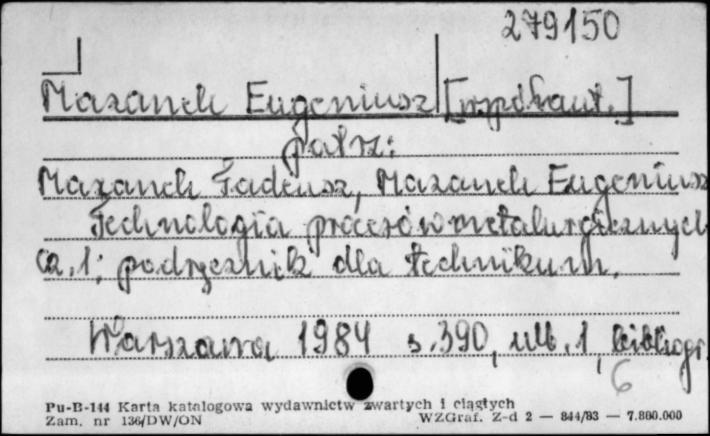 279150
Mazanek Eugeniusz [współaut.]
patrz:
Mazanek Tadeusz, Mazanek Eugeniusz
Technologia procesów metalurgicznych
Cz. 1: podręcznik dla technikum.
Warszawa 1984 s. 390, nlb. 1, bibliogr.
6
Pu-B-144 Karta katalogowa wydawnictw zwartych i ciągłych
Zam. nr 136/DW/ON WZGraf. Z-d 2 — 844/83 — 7.800.000